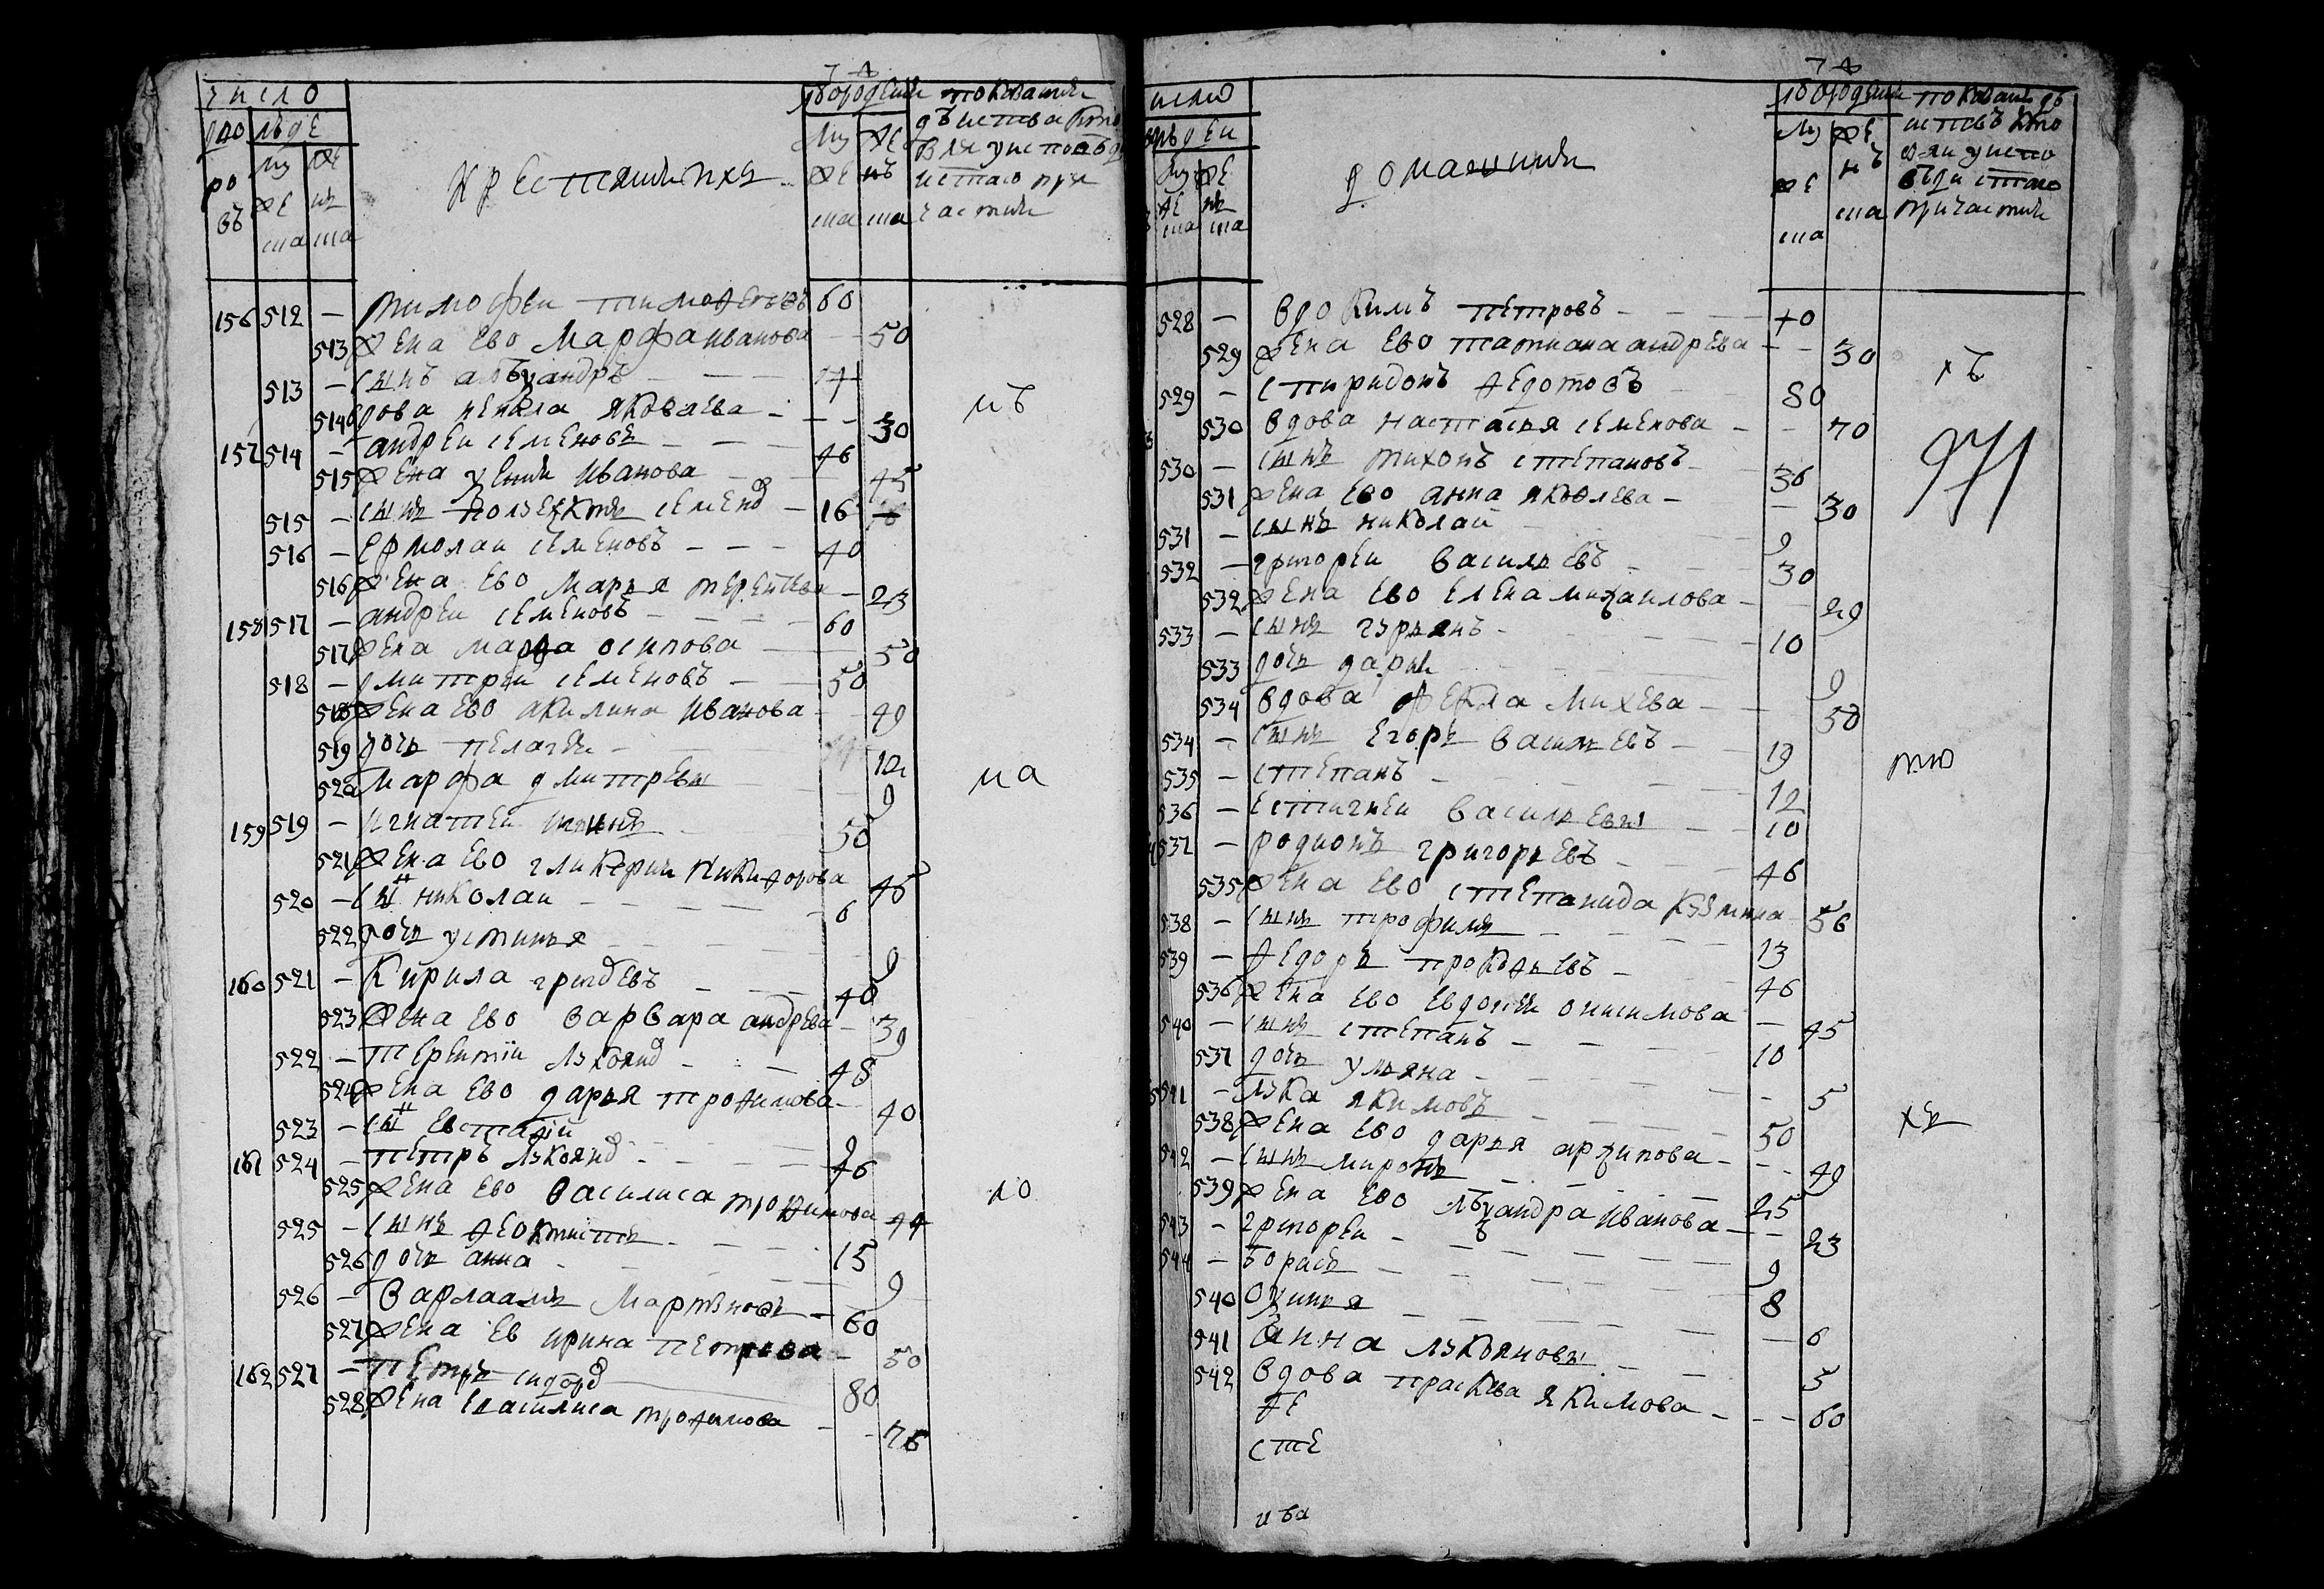 число
дво
ровъ
людей
му
же
ска
же
нъ
ска
крестьянских
74
от рождения
му
же
ска
же
нъ
ска
показания
действа кто
былъ у исповеди
и стаго при
частия
156 512 — тимофеи тимофеевъ 60
513 жена ево марфа иванова — 50
513 — сынъ алеѯандръ — 17
514 вдова фекла яковлева — 30
157 514 — андреи семеновъ — 46
515 жена ксения иванова — 45
515 — сынъ полуехтъ семенов — 16
516 — ермолаи семеновъ — 40
516 жена ево марья терентева — 23
158 517 — андреи семеновъ — 60
517 жена марфа осипова — 50
518 — дмитреи семеновъ — 50
518 жена ево акилина иванова — 49
519 дочь пелагея — 12
520 марфа дмитревы — 9
159 519 — игнатеи 50
521 жена ево гликерия никифорова 45
520 — сын николаи — 6
522 дочь устинья — 9
160 521 — кирила — 40
523 жена ево варвара андрева — 39
522 — терентіи лукоянов — 48
524 жена ево дарья трофимова — 40
523 — сын евстафіи — 9
161 524 — петръ лукоянов — 46
525 жена ево василиса трофимова 44
525 — сынъ феоктистъ — 15
526 дочь анна — 9
526 — варлаамъ мартыновъ — 60
527 жена ев ирина петрова — 50
162 527 — петръ сидоров 80
528 жена василиса трофимова — 76
на
число
людеи
му
же
ска
же
нъ
ска
домашния
74
от рождения
му
же
ска
же
нъ
ска
показания де
иствъ кто
былъ у испо
веди стаго
причастия
528 — вдокимъ петровъ — 40
529 жена ево татиана андрева — 30
529 — спиридонъ федотовъ 80
530 вдова настасья семенова — 70
530 — сынъ тихонъ степановъ — 36
531 жена ево анна яковлева — 30
531 — сынъ николаи — 9
532 — григореи васильевъ — 30
532 жена ево елена михаилова — 29
533 — сынъ гурьянъ — 10
533 дочь дария — 9
534 вдова фекла михева — 50
534 — сынъ егоръ васильевъ — 19
535 — степанъ — 12
536 — естигнеи васильевы — 10
537 — родионъ григорьевъ — 46
535 жена ево степанида кузмина — 56
538 — сынъ трофимъ — 13
539 — федоръ прокофьевъ — 46
536 жена ево евдокия онисимова — 45
540 — сынъ степанъ — 10
537 дочь ульяна — 5
541 — лука якимовъ — 50
538 жена ево дарья архипова — 49
542 — сынъ миронъ — 25
539 жена ево алеѯандра иванова — 23
543 — григореи — 9
544 — борисъ — 8
540 — 6
541 анна лукьяновы — 5
542 вдова прасковя якимова — 60
фе
сте
ива